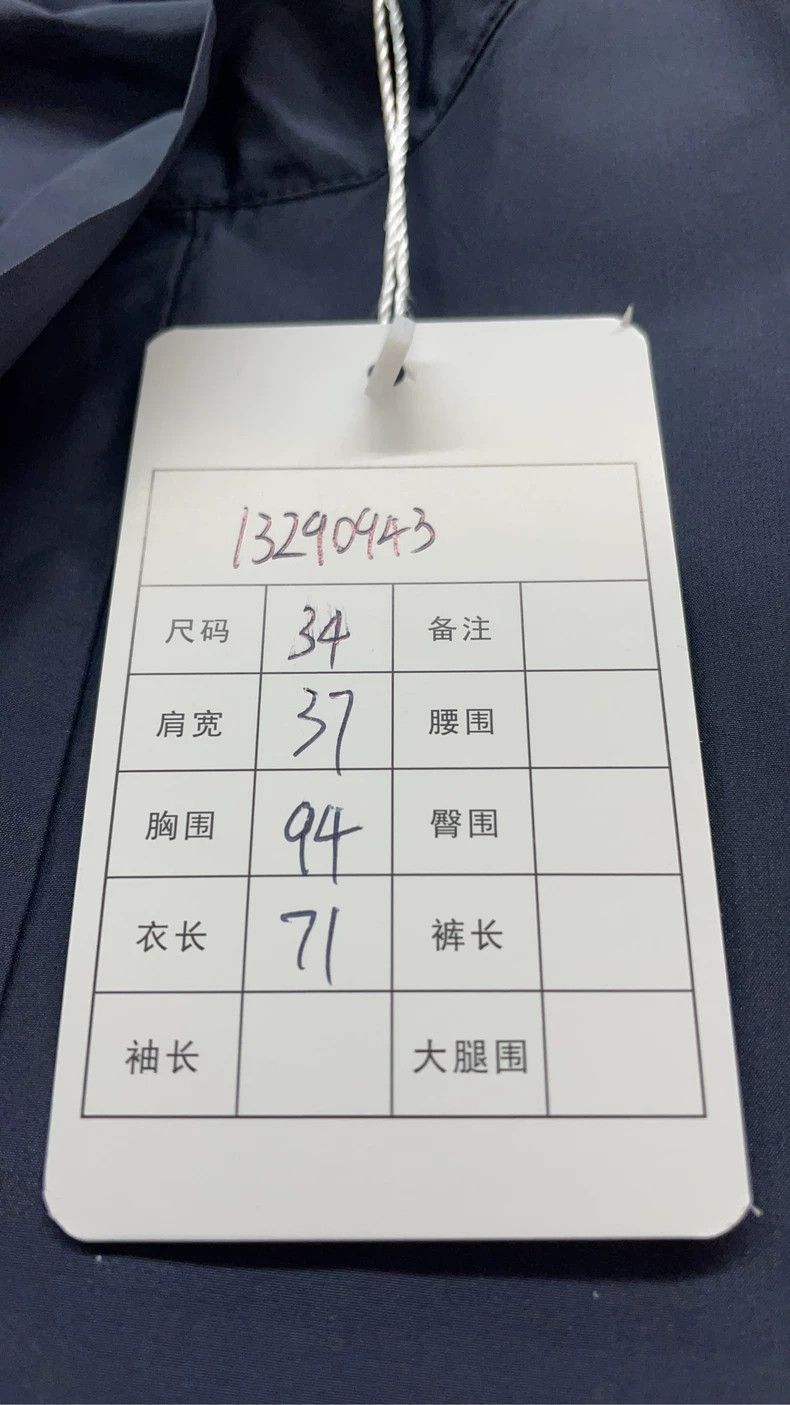 13290943
尺码 34 备注
肩宽 37 腰围
胸围 94 臀围
衣长 71 裤长
袖长 大腿围